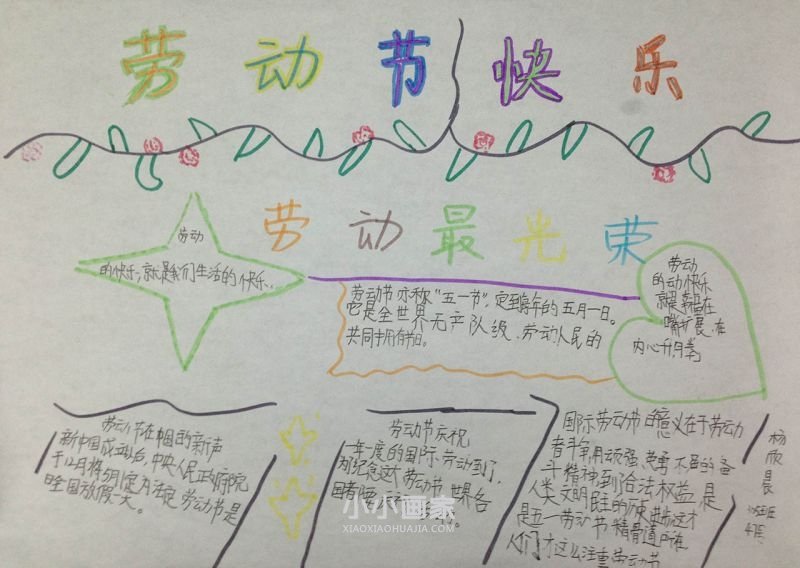 劳动节快乐
劳动最光荣
劳动
的快乐,就是我们生活的快乐.
劳动节亦称"五一节",定到每年的五月一日。
它是全世界无产队级、劳动人民的
共同拥有节日。
劳动
的动快乐
就是幸福在
嘴扩展,在
内心升
劳动节在中国的新声
新中国成立后,中央人民正府院
于12月将5月1定为法定劳动节是
日全国放假一天。
劳动节庆祝
一年一度的国际劳动到了,
为纪念这个劳动节世界各
国者
国际劳动节的意义在于劳动
者斗争,用顽强、英勇不屈的奋
斗精神,到合法权益是
人类文明民主的
是五一劳动节精
人们才这么注重劳动节
杨欣
班
小小画家
XIAOXIAOHUAJIA.COM